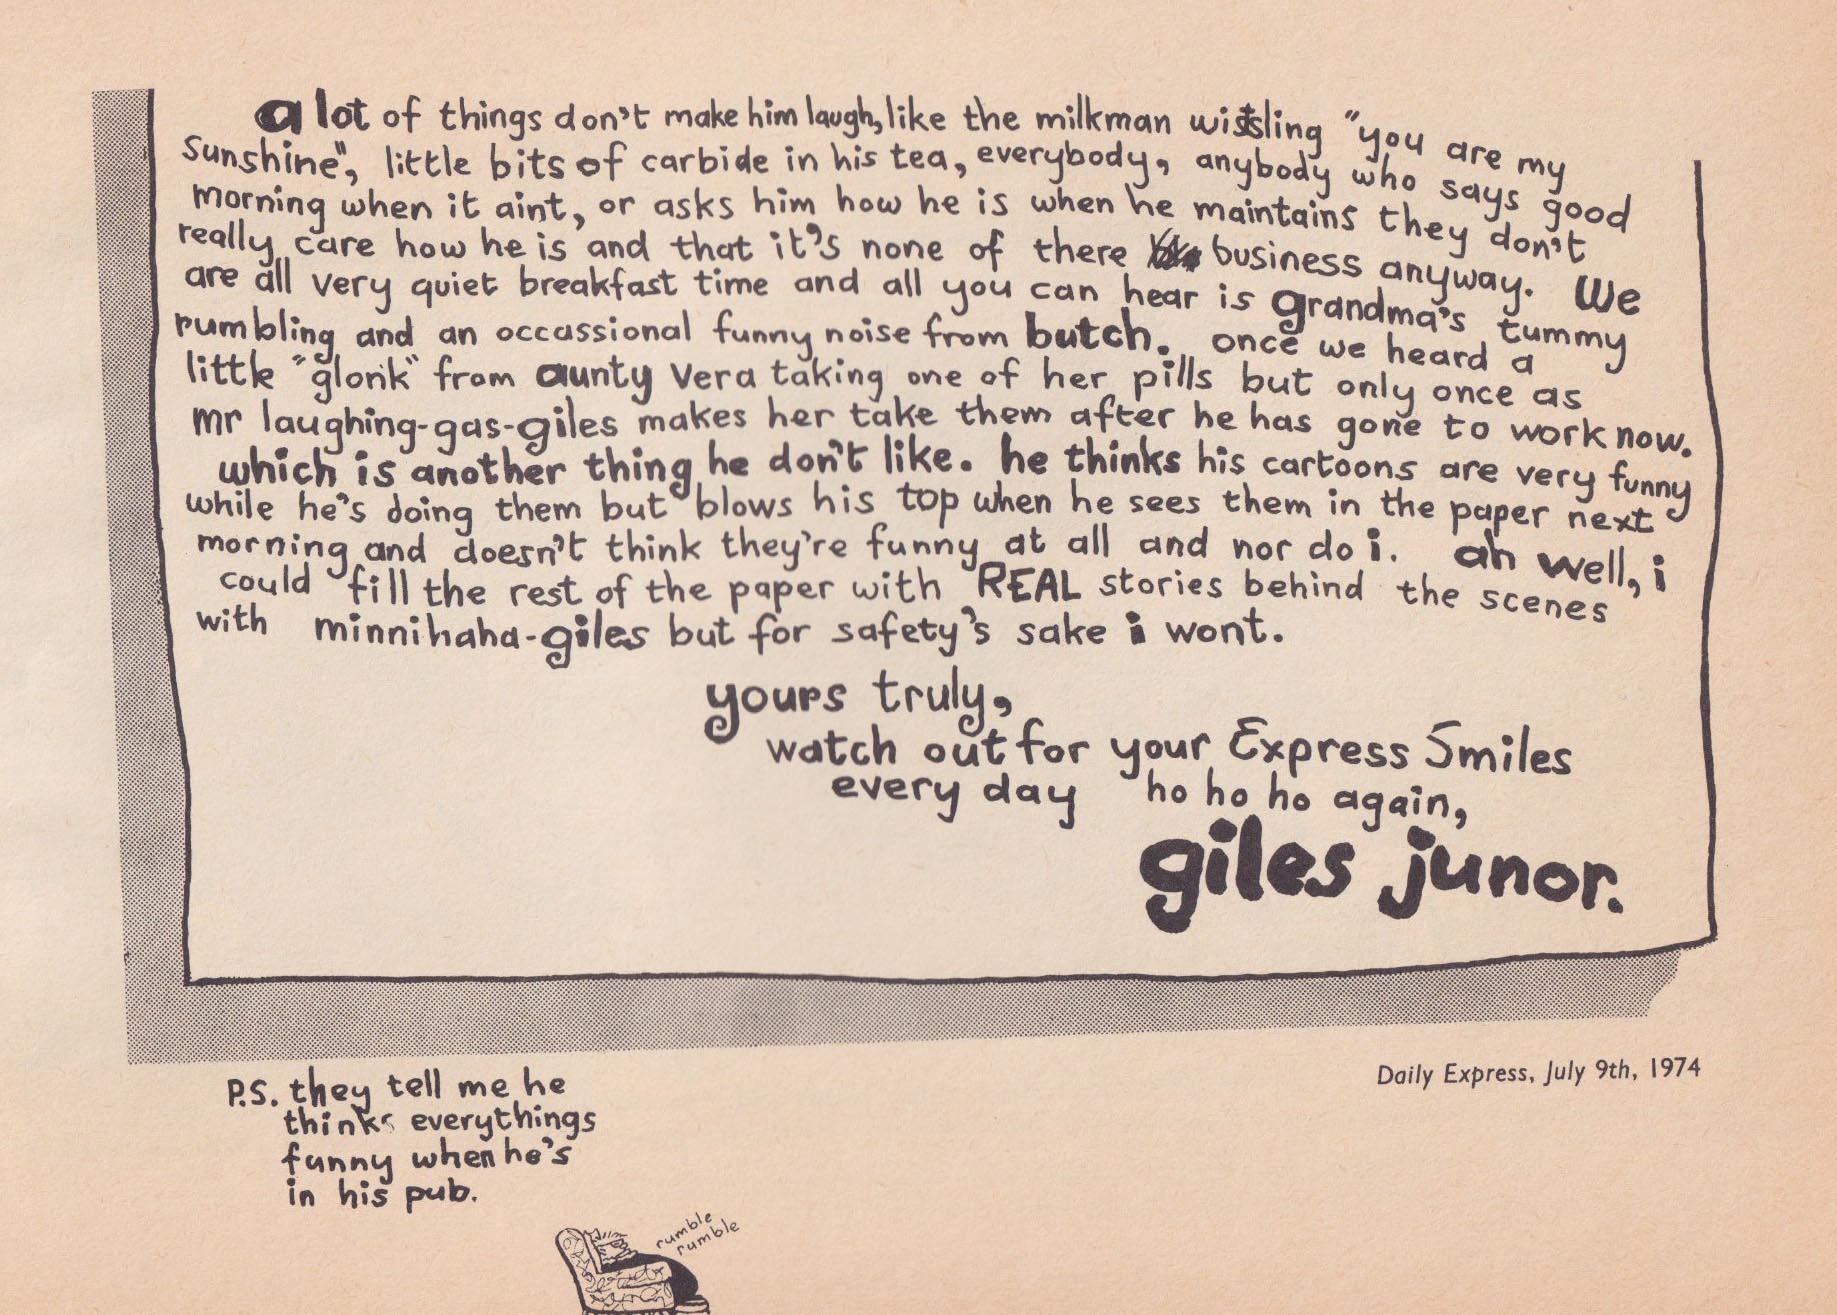 a lot of things don't make him laugh, like the milkman wistling "you are my
sunshine", little bits of carbide in his tea, everybody, anybody who says good
morning when it aint, or asks him how he is when he maintains they don't
really care how he is and that it's none of there business anyway. We
are all very quiet breakfast time and all you can hear is grandma's tummy
rumbling and an occassional funny noise from butch. once we heard a
little "glonk" from aunty Vera taking one of her pills but only once as
mr laughing-gas-giles makes her take them after he has gone to work now.
which is another thing he don't like. he thinks his cartoons are very funny
while he's doing them but blows his top when he sees them in the paper next
morning and doesn't think they're funny at all and nor do i. ah well, i
could fill the rest of the paper with REAL stories behind the scenes
with minnihaha-giles but for safety's sake i wont.
yours truly,
watch out for your Express Smiles
every day ho ho ho again,
giles junor.
Daily Express, July 9th, 1974
P.S. they tell me he
thinks everythings
funny when he's
in his pub.
rumble
rumble